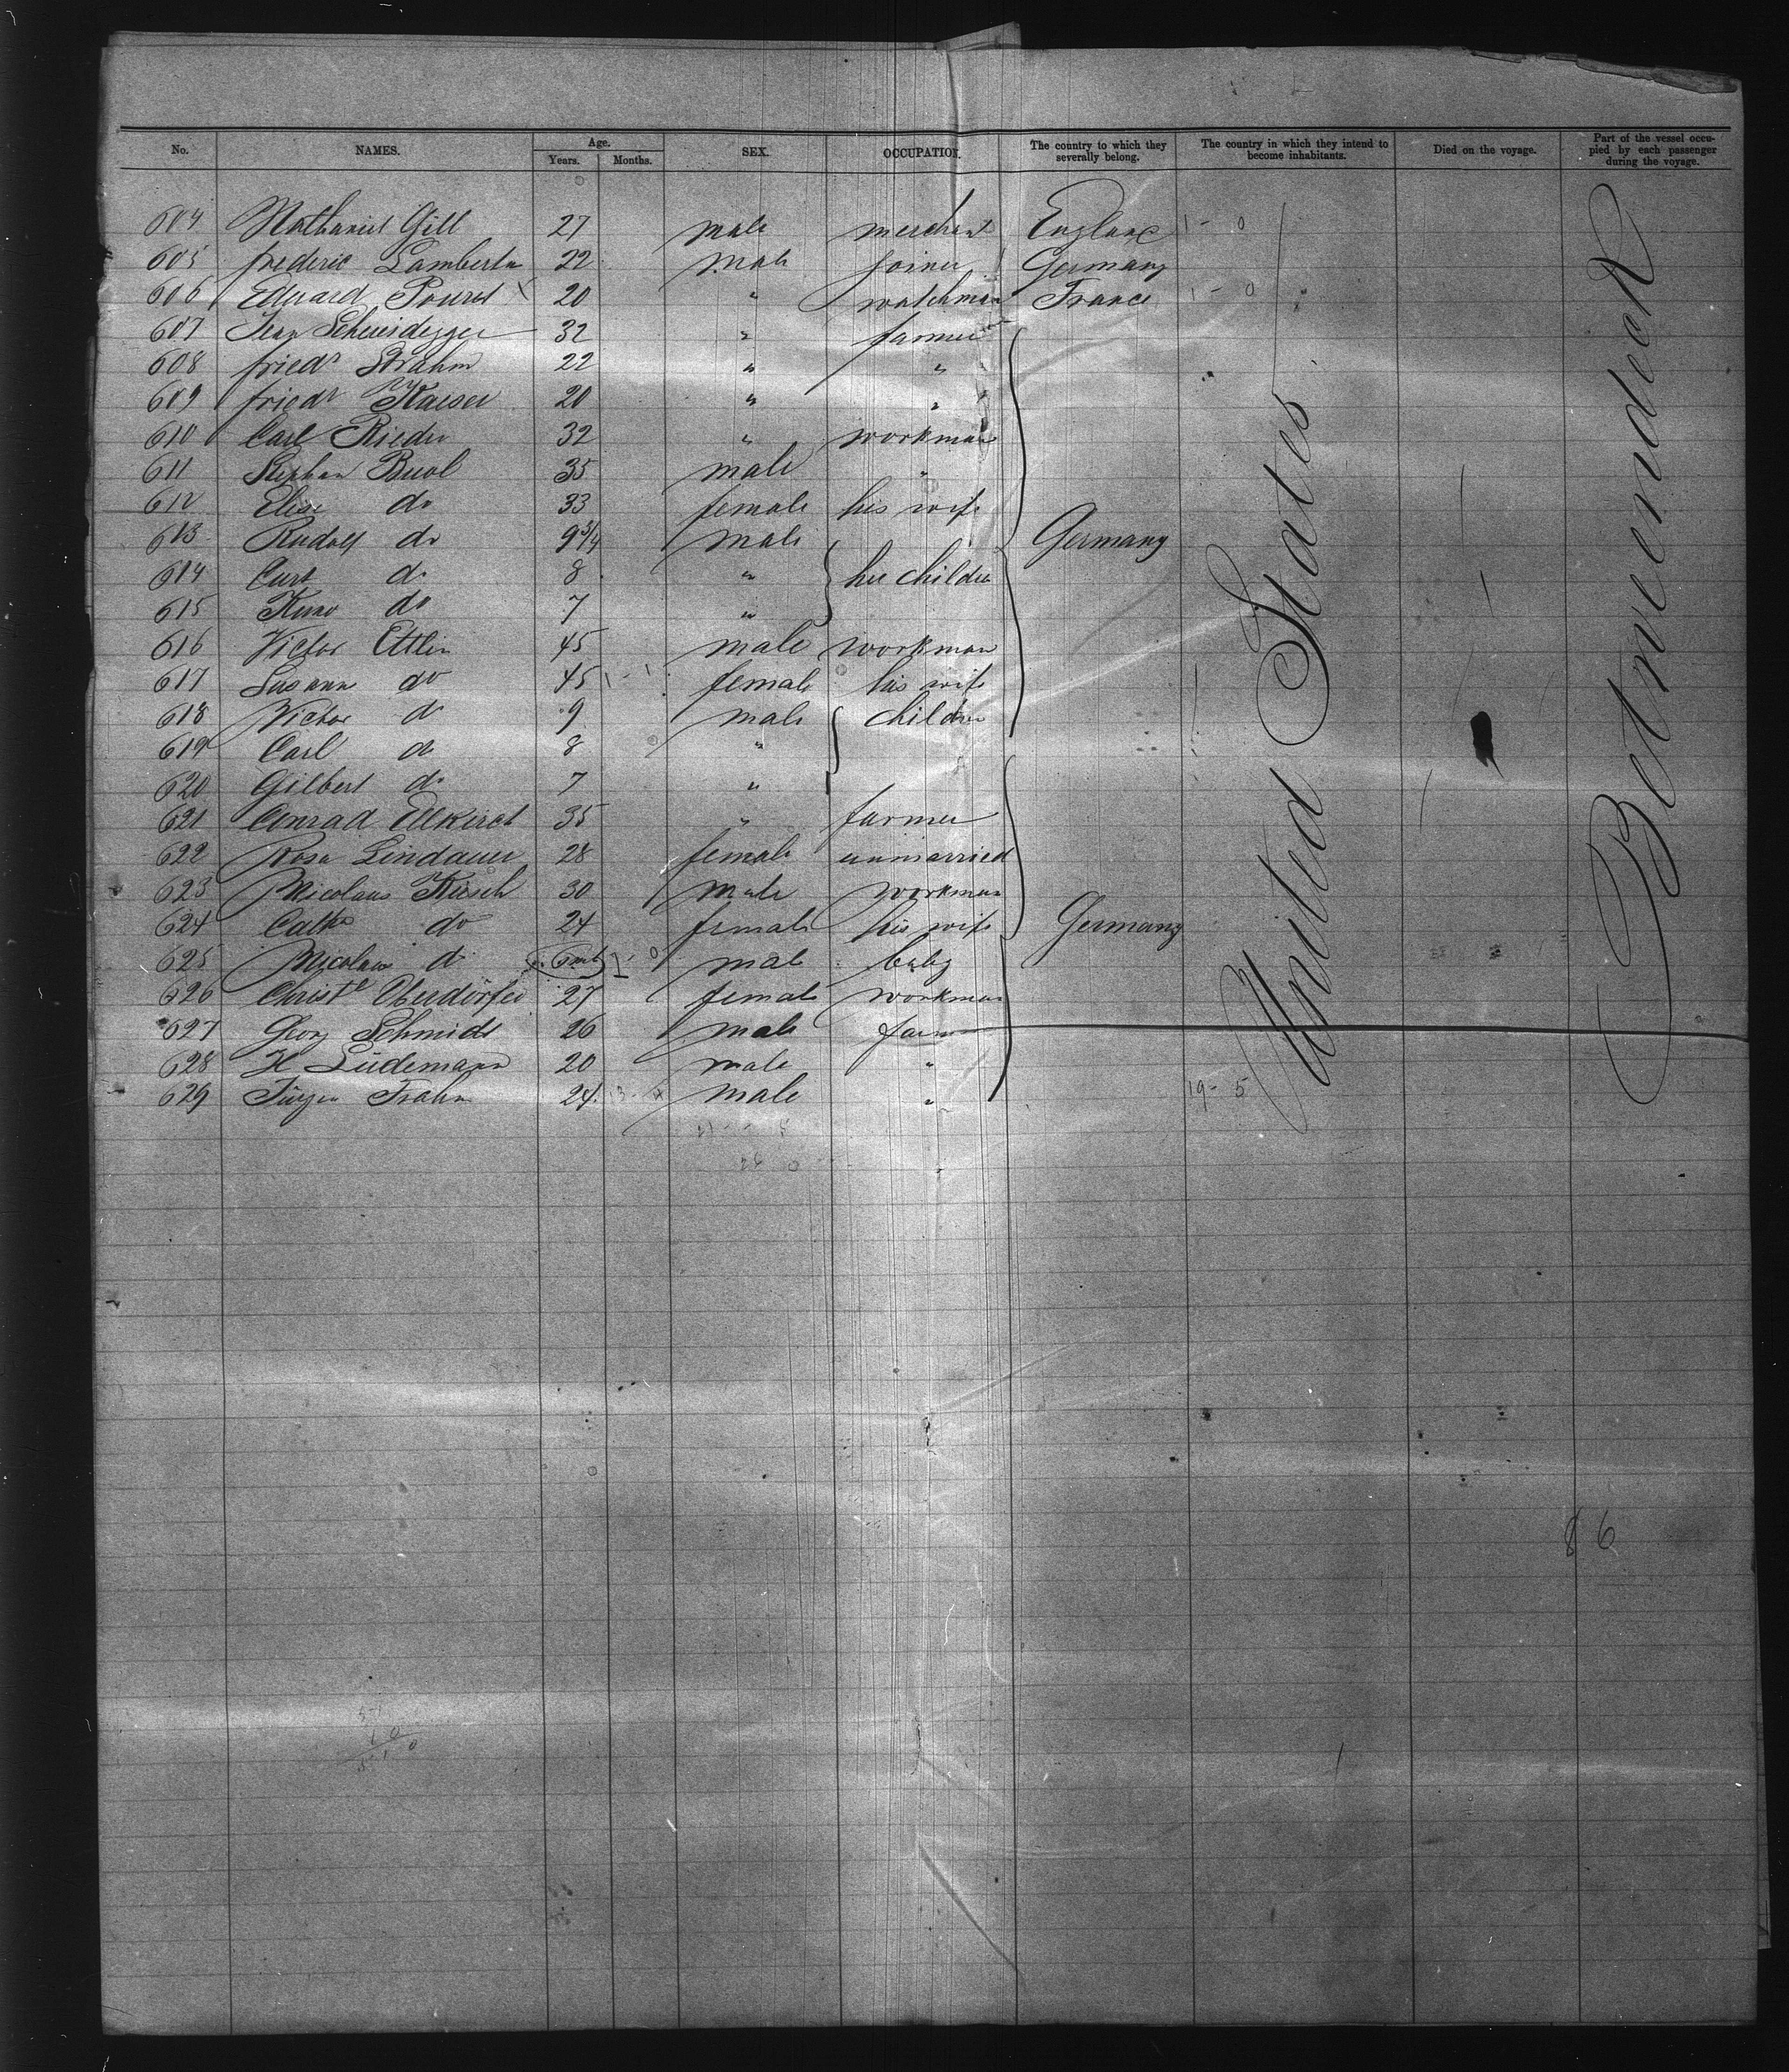 No. NAMES. Age. Years. Months. SEX. OCCUPATION. The country to which they severally belong. The country in which they intend to become inhabitants. Died on the voyage. Part of the vessel occupied by each passenger during the voyage.
604 Nathaniel Gill 27 male merchant England 1 - 0
605 frederic Lambert 22 male joiner Germany
606 Eduard 20 " watchman France 1 - 0
607 Jean Scheidegger 32 " farmer
608 friedr Strahm 22 " "
609 friedr Kaeser 20 " "
610 Carl Rieder 32 " workman
611 Stephan Buol 35 male "
612 Elise do 33 female his wife
613 Rudolf do 9 3/4 male Germany
614 Curt do 8 " her children
615 Kuno do 7 "
616 Victor Ettlin 45 male workman
617 Susanna do 45 1 - 1 female his wife
618 Victor do 9 male children
619 Carl do 8 "
620 Gilbert do 7 "
621 Conrad Ellkirch 35 " farmer
622 Rosa Lindauer 28 female unmarried
623 Nicolaus Kirsch 30 male workman
624 Cath do 24 female his wife Germany
625 Nicolaus do 6 mt 1 - 0 male baby
626 Christe Oberdörfer 27 female workman
627 Georg Schmidt 26 male farm
628 H Lüdemann 20 male "
629 Jürgen Frahm 24 male " 19 - 5
United States
Betweendeck
86